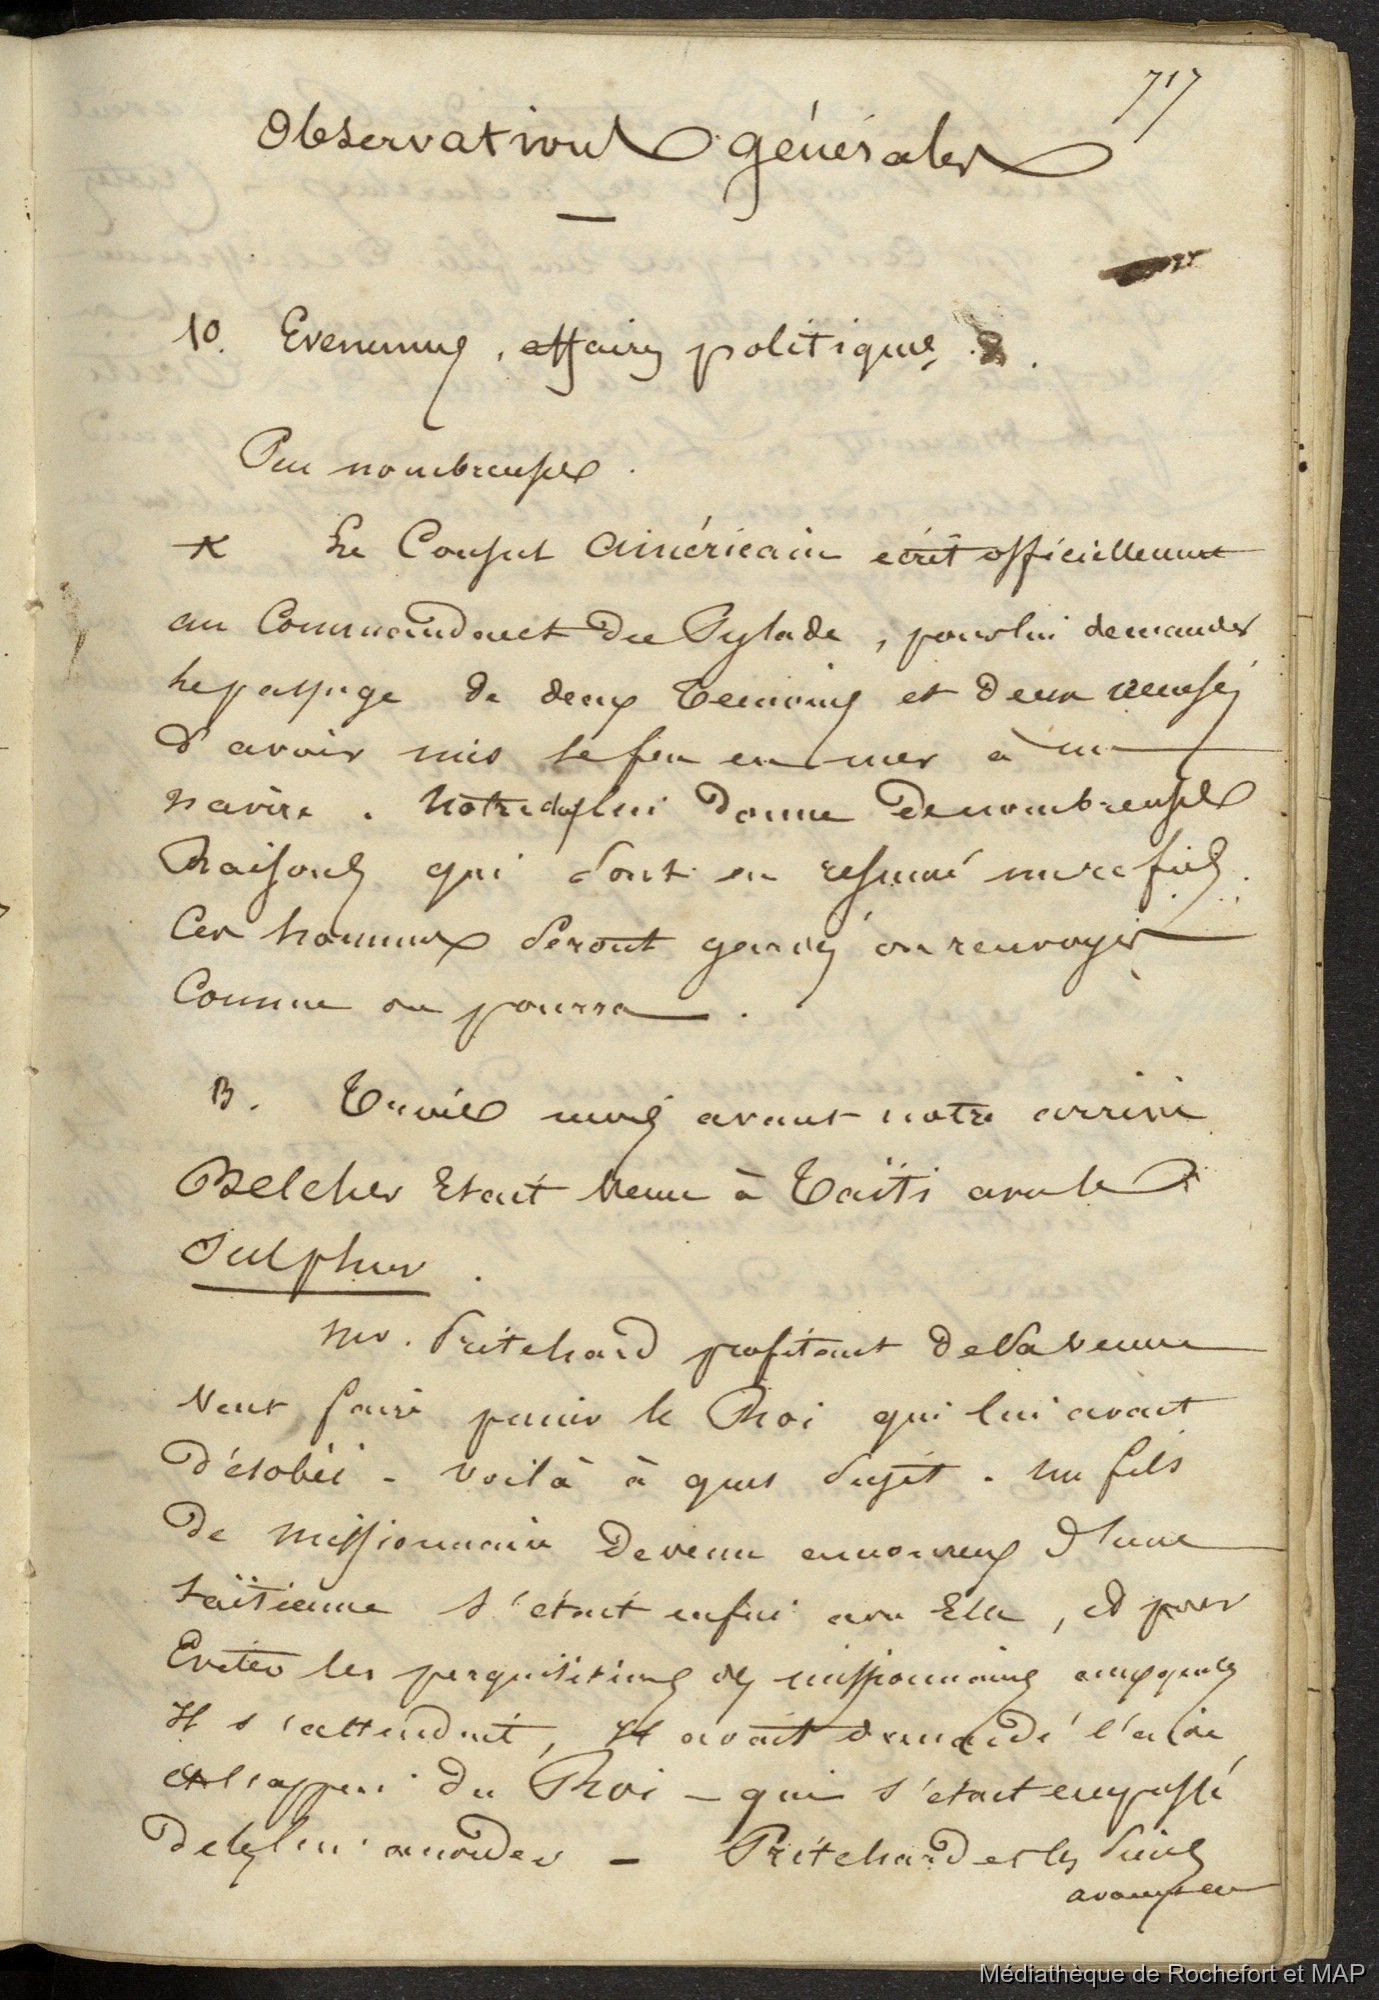 717
Observations générales
1º. Evenemens, affaires politiques.
Peu nombreuses.
Le Consul Américain ecrit officiellement
au Commandant du Pylade, pour lui demander
le passage de deux temoins et deux accusés
d'avoir mis le feu en mer à un
navire. Notre chef lui donne de nombreuses
Raisons qui sont en resumé un refus.
Ces hommes seront gardés ou renvoyés
Comme on pourra.
B. Trois mois avant notre arrivée
Belcher Etait venu à Taïti avec le
Sulphur.
Mr. Pritchard profitant de sa venue
veut faire punir le Roi qui lui avait
désobéi - voilà à quel sujet. un fils
de missionnaire devenu amoureux d'une
taïtienne s'était enfui avec Elle, et pour
Eviter les perquisitions des missionnaires auxquels
Il s'attendait, Il avait demandé l'aide
et l'appui du Roi - qui s'était empressé
de les lui accorder - Pritchard et les siens
avaient eu
Médiathèque de Rochefort et MAP